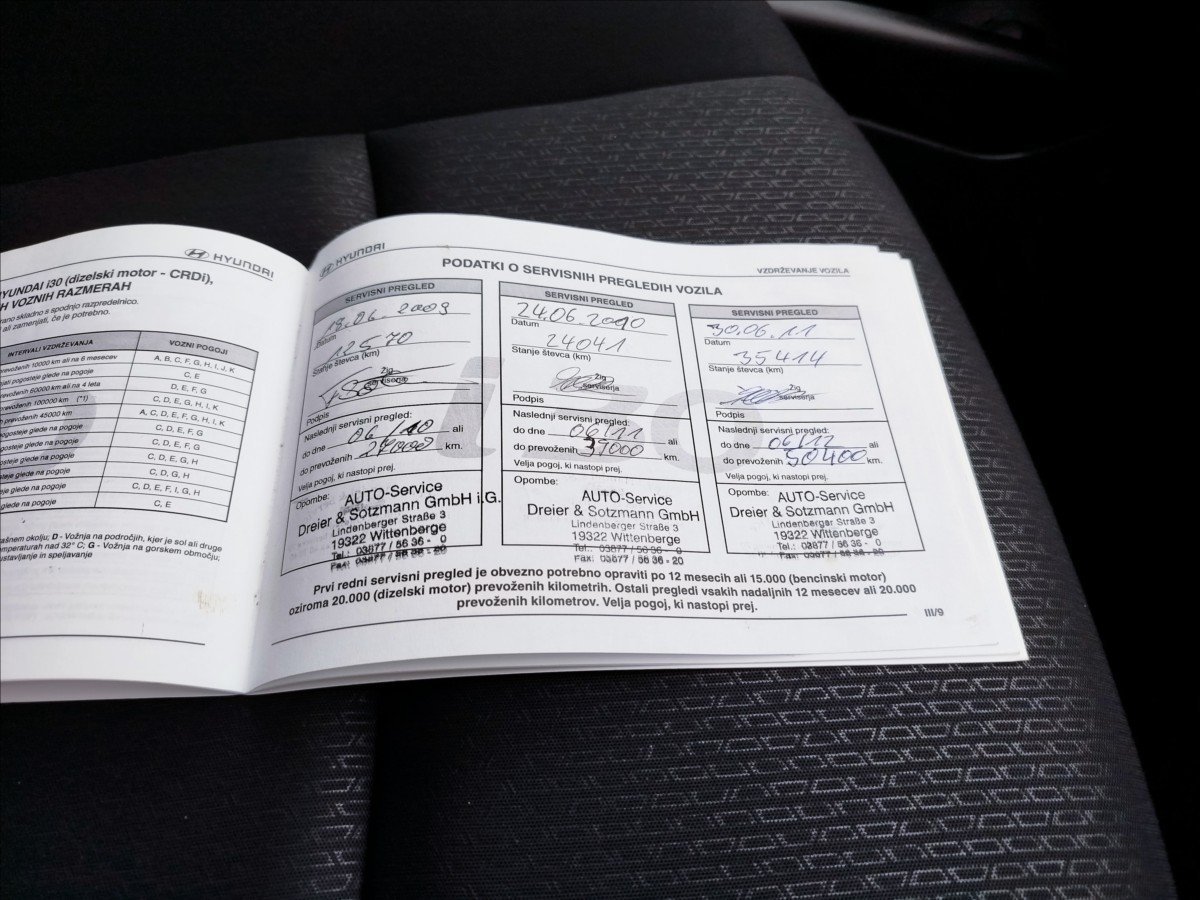 HYUNDAI
YUNDAI i30 (dizelski motor - CRDi),
H VOZNIH RAZMERAH
rano skladno s spodnjo razpredelnico.
ali zamenjati, če je potrebno.
INTERVALI VZDRŽEVANJA VOZNI POGOJI
prevoženih 10000 km ali na 6 mesecev A, B, C, F, G, H, I, J, K
pogosteje glede na pogoje C, E
prevoženih 60000 km ali na 4 leta D, E, F, G
prevoženih 100000 km (*1) C, D, E, G, H, I, K
prevoženih 45000 km A, C, D, E, F, G, H, I, K
pogosteje glede na pogoje C, D, E, F, G
glede na pogoje C, D, E, F, G
glede na pogoje C, D, E, G, H
glede na pogoje C, D, G, H
glede na pogoje C, D, E, F, I, G, H
glede na pogoje C, E
ašnem okolju; D - Vožnja na področjih, kjer je sol ali druge
mperaturah nad 32° C; G - Vožnja na gorskem območju;
ustavljanje in speljavanje
HYUNDAI
VZDRŽEVANJE VOZILA
PODATKI O SERVISNIH PREGLEDIH VOZILA
SERVISNI PREGLED
18.06.2009
Datum
12570
Stanje števca (km)
Žig
serviserja
Podpis
Naslednji servisni pregled:
do dne 06/10 ali
do prevoženih 27000 km.
Velja pogoj, ki nastopi prej.
Opombe:
AUTO-Service
Dreier & Sotzmann GmbH i.G.
Lindenberger Straße 3
19322 Wittenberge
Tel.: 03877 / 56 36 - 0
Fax: 03877 / 56 36 - 20
SERVISNI PREGLED
24.06.2010
Datum
24041
Stanje števca (km)
Žig
serviserja
Podpis
Naslednji servisni pregled:
do dne 06/11 ali
do prevoženih 37000 km.
Velja pogoj, ki nastopi prej.
Opombe:
AUTO-Service
Dreier & Sotzmann GmbH
Lindenberger Straße 3
19322 Wittenberge
Tel.: 03877 / 56 36 - 0
Fax: 03877 / 56 36 - 20
SERVISNI PREGLED
30.06.11
Datum
35414
Stanje števca (km)
Žig
serviserja
Podpis
Naslednji servisni pregled:
do dne 06/12 ali
do prevoženih 50400 km.
Velja pogoj, ki nastopi prej.
Opombe:
AUTO-Service
Dreier & Sotzmann GmbH
Lindenberger Straße 3
19322 Wittenberge
Tel.: 03877 / 56 36 - 0
Fax: 03877 / 56 36 - 20
Prvi redni servisni pregled je obvezno potrebno opraviti po 12 mesecih ali 15.000 (bencinski motor)
oziroma 20.000 (dizelski motor) prevoženih kilometrih. Ostali pregledi vsakih nadaljnih 12 mesecev ali 20.000
prevoženih kilometrov. Velja pogoj, ki nastopi prej.
III/9